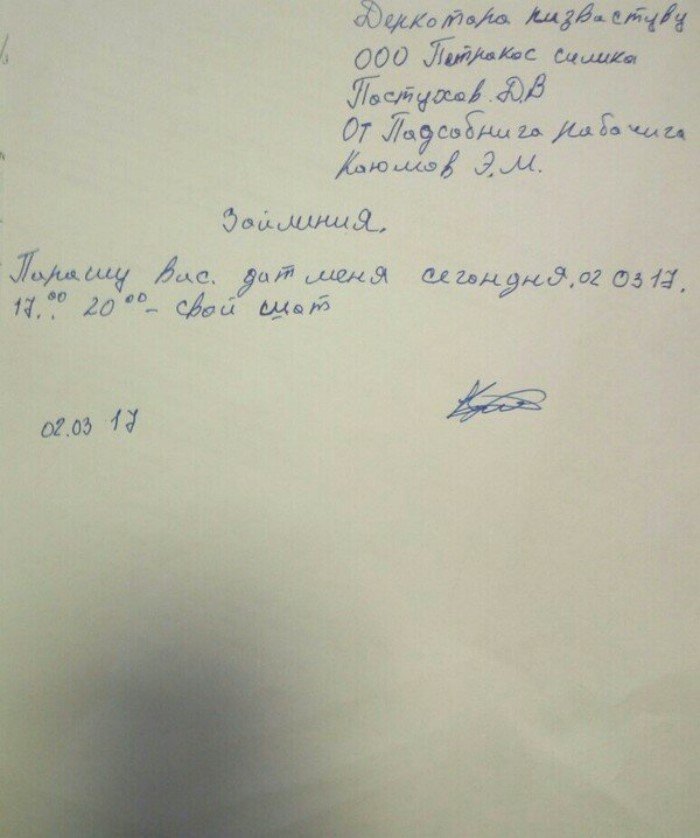 Деркотара пизвастуву
ООО Петракас силика
Пастухов. Д.В
От Падсабнига рабачига
Каюмов Э.М.
Зайлиния.
Парашу Вас. дат меня сегондня. 02 03 17.
17.00 20 00 - свой щат
02.03 17